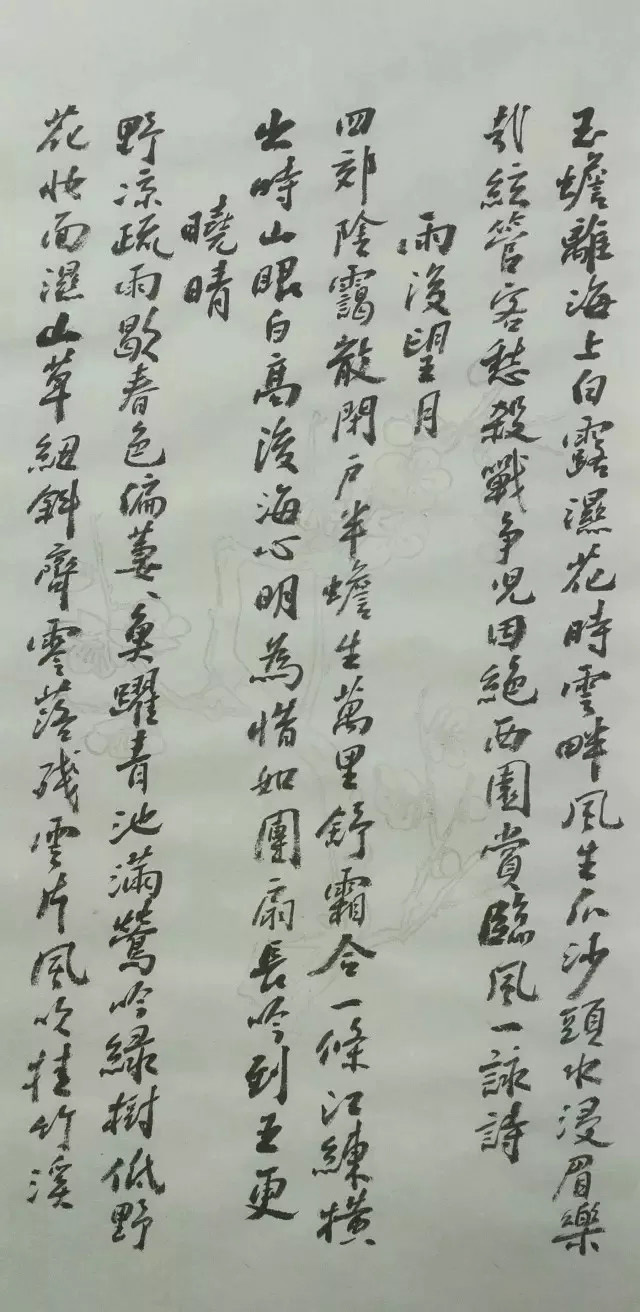 玉蟾離海上白露濕花時雲畔風生爪沙頭水浸眉樂
哉絃管客愁殺戰爭兒因絕西園賞臨風一詠詩
雨後望月
四郊陰靄散開戶半蟾生萬里舒霜合一條江練橫
出時山眼白高後海心明為惜如團扇長吟到五更
曉晴
野涼疏雨歇春色偏萋、魚躍青池滿鶯吟綠樹低野
花妝面濕山草紐斜齊零落殘雲片風吹挂竹溪